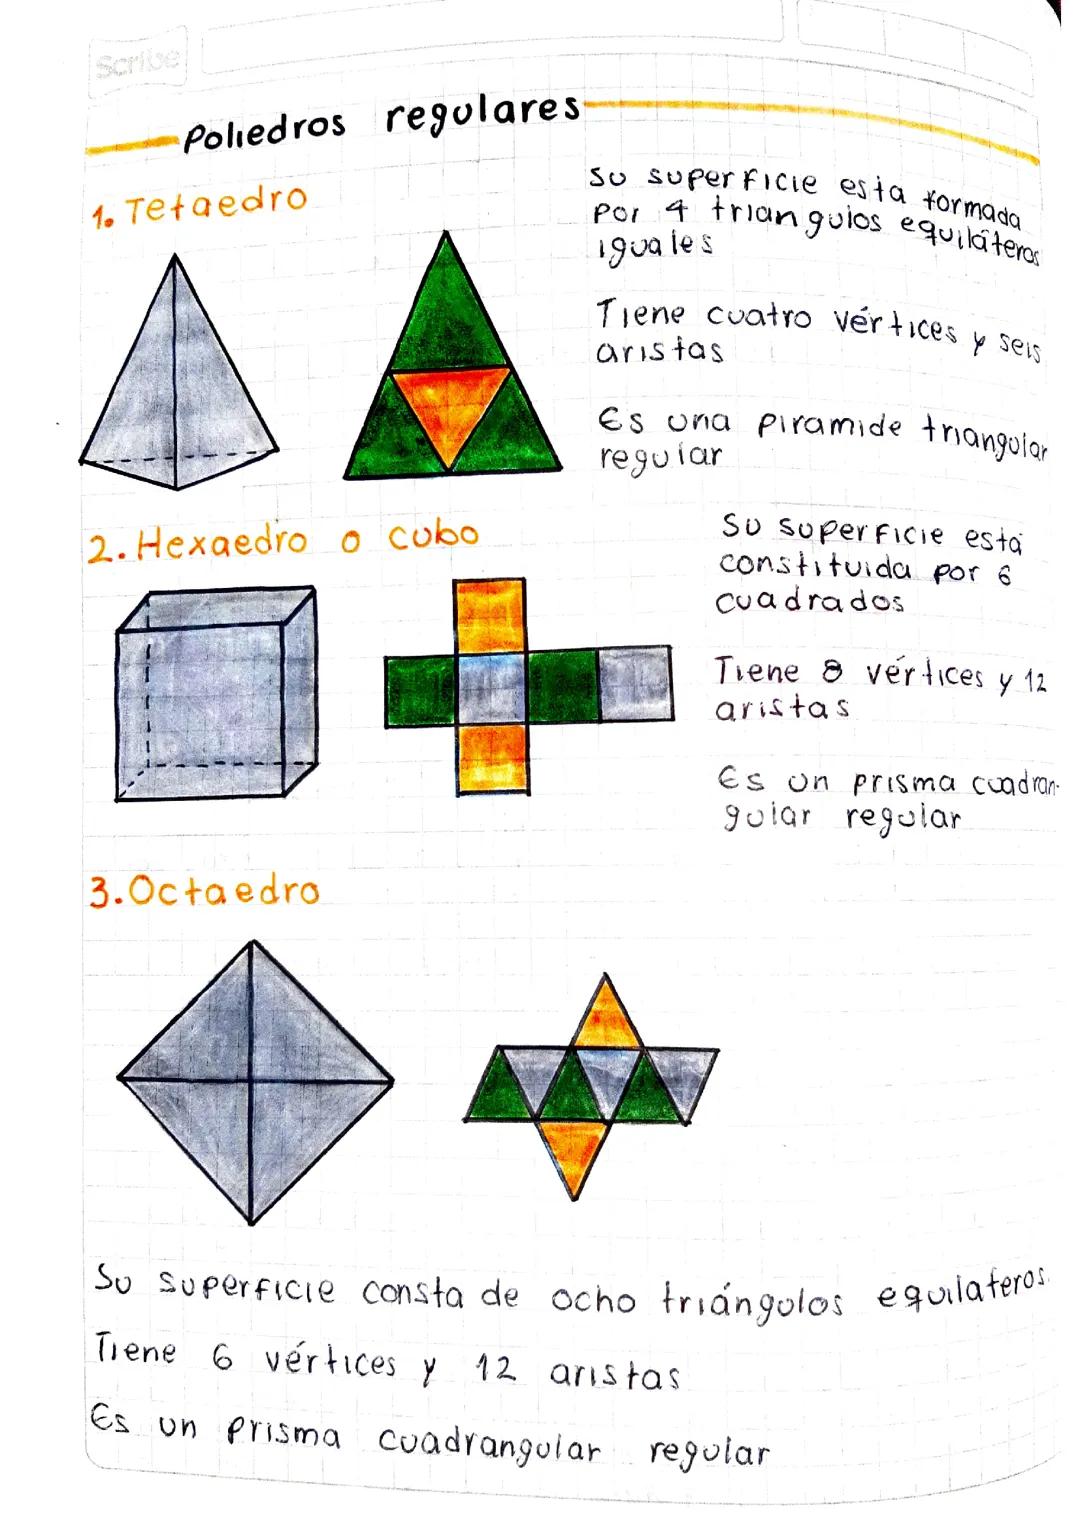 Scribe
Poliedros regulares
1. Tetaedro
Su superficie esta formada
por 4 trianguios equiláteros
iguales
Tiene cuatro vértices y seis
aristas
Es una piramide triangular
reguiar
2. Hexaedro o cubo
Su superficie está
constituida por 6
cuadrados
Tiene 8 vértices y 12
aristas
Es un prisma cuadran-
guiar regular
3. Octaedro
Su superficie consta de ocho triángulos equilateros.
Tiene 6 vértices y 12 aristas
Es un prisma cuadrangular regular